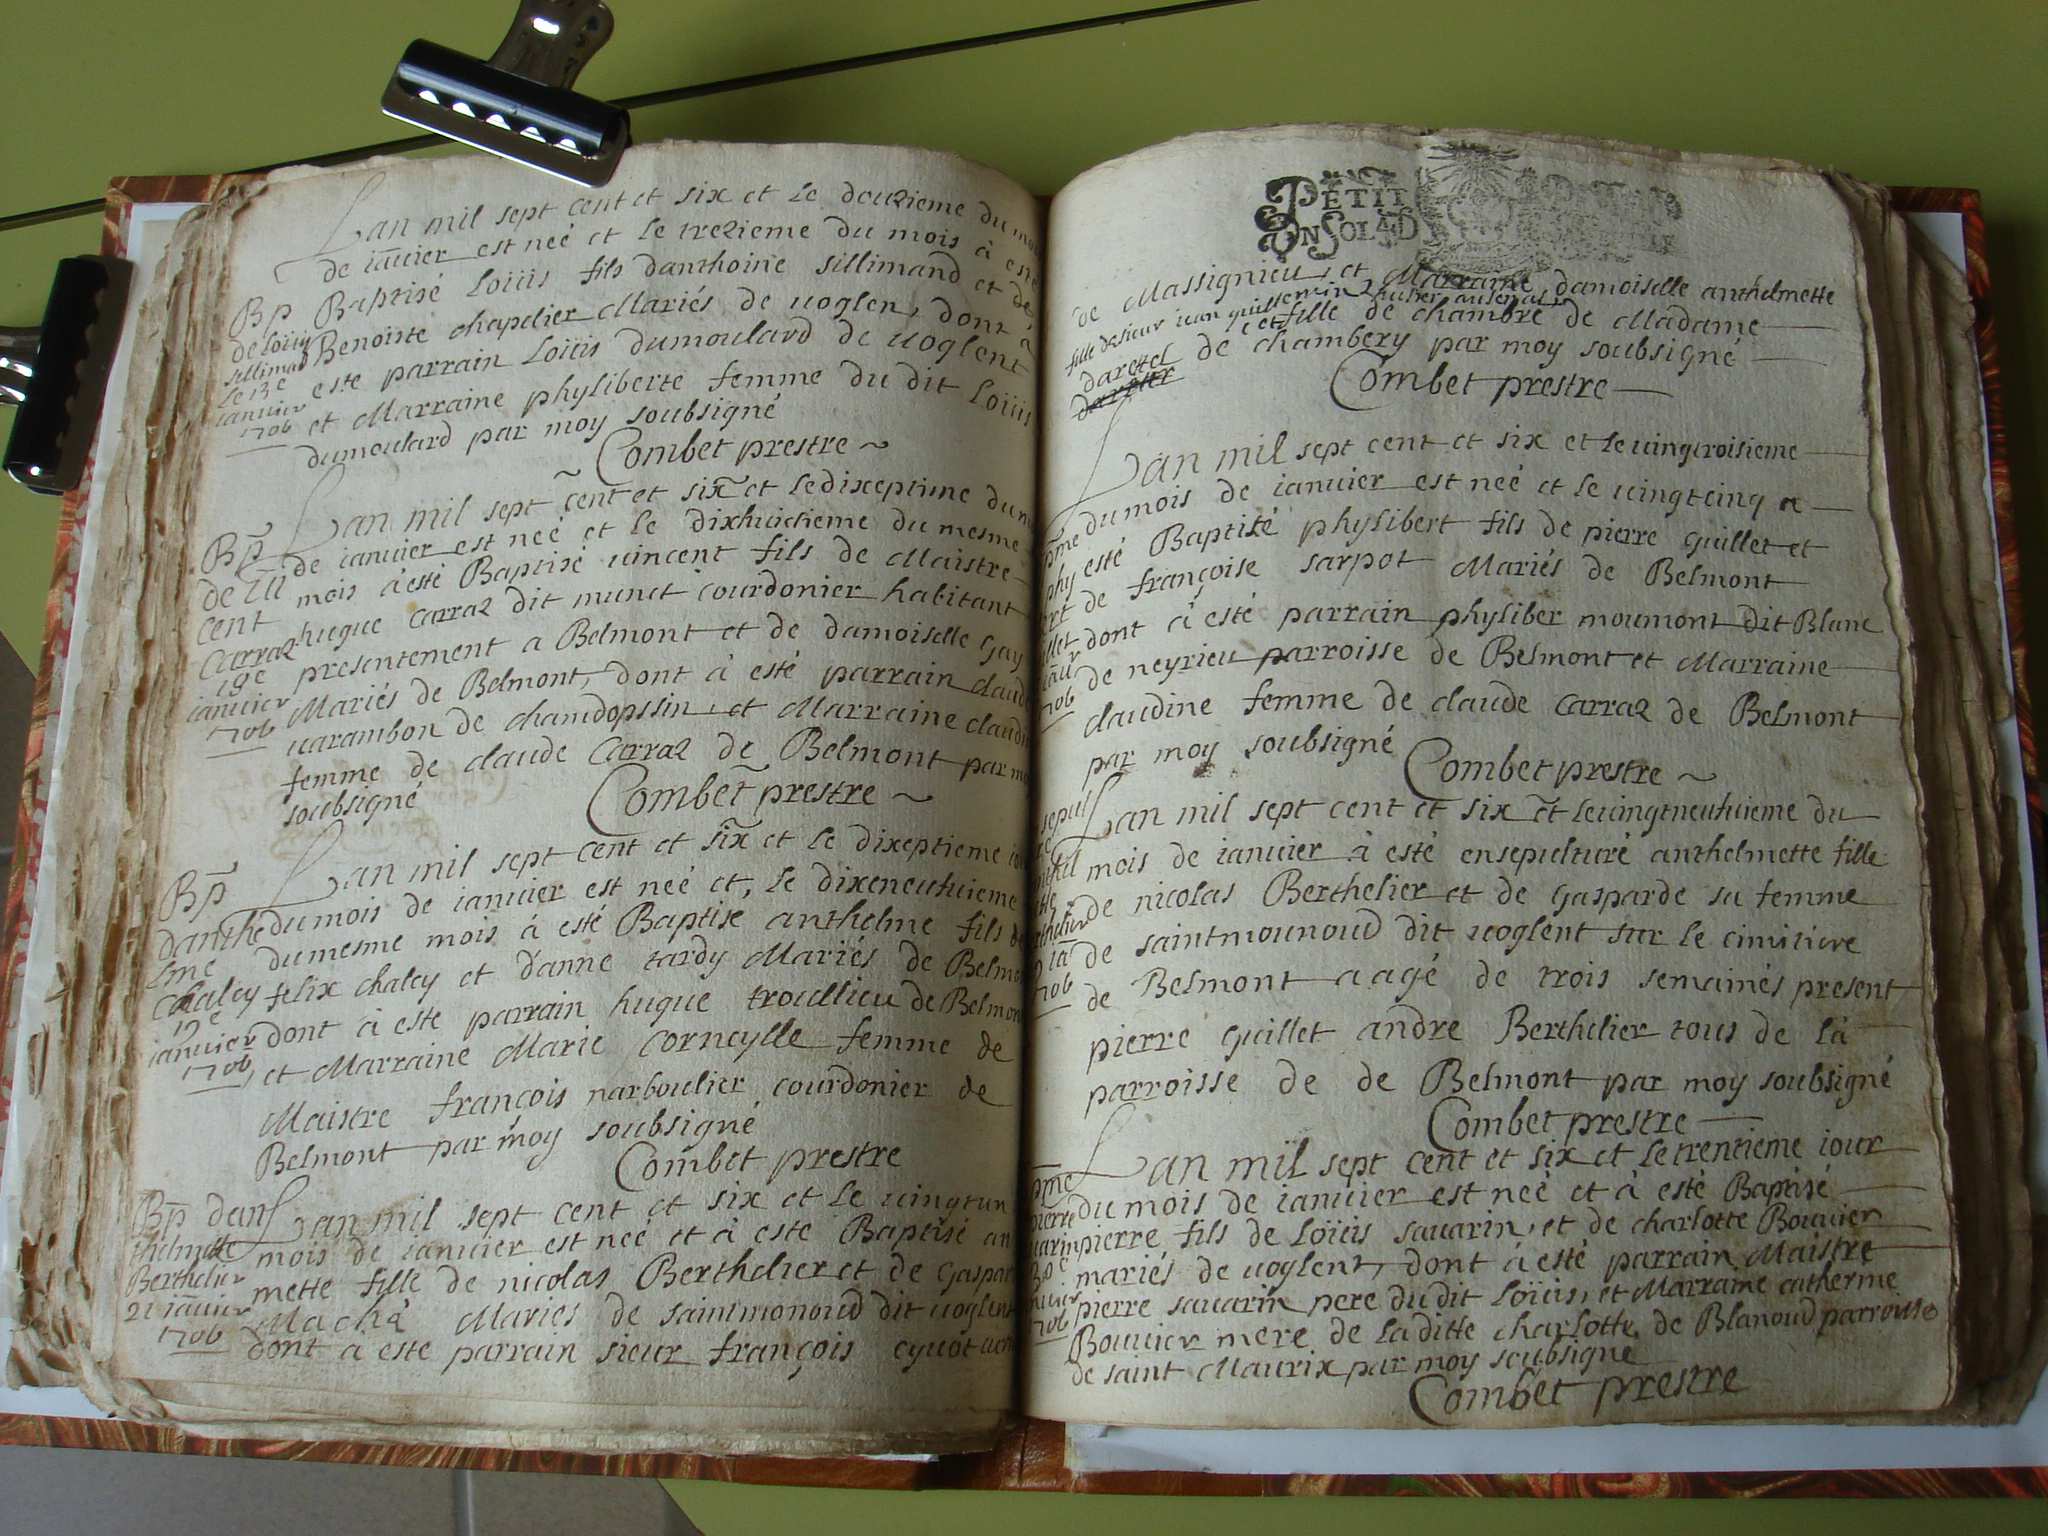 Lan mil sept cent et six et le douzieme du mois
de ianvier est neé et le trezieme du mois à esté
Baptisé Loüis fils danthoine sillimand et de
Benoiste chapelier Mariés de uoglen, dont à
este parrain Loüis dumoulard de uoglent
et Marraine phyliberte femme du dit Loüis
dumoulard par moy soubsigné
Combet prestre
Bp
de Loüis
sillimand
Le 13e
ianvier
1706
Lan mil sept cent et six et le dixeptime du m
de ianvier est neé et le dixhuictieme du mesme
mois à esté Baptisé vincent fils de Maistre
hugue Carraz dit munet courdonier habitant
presentement a Belmont et de damoiselle Gay
Mariés de Belmont, dont à esté parrain claude
varambon de chamdopssin, et Marraine claudi
femme de claude Carraz de Belmont par mo
soubsigné
Combet prestre
Bp
de Vin
cent
Carraz
19e
ianvier
1706
Lan mil sept cent et six et le dixeptieme io
du mois de ianvier est neé et, le dixeneufuieme
du mesme mois à esté Baptisé anthelme fils de
felix chaley et danne tardy Mariés de Belmo
dont à este parrain hugue troullieu de Belmon
et Marraine Marie Corneylle femme de
Maistre françois narboulier courdonier de
Belmont par moy soubsigné
Combet prestre
Bp
danthe
lme
chaley
19e
ianvier
1706
Lan mil sept cent et six et le vingtun
mois de ianvier est neé et à este Baptisé an
mette fille de nicolas Berthelier et de Gaspar
Macha Mariés de saintmonoud dit uoglent
dont a este parrain sieur françois cyuot
Bp dan
thelmette
Berthelier
21 ianvier
1706
PETIT
UN SOL
de Massignieu, et Marraine damoiselle anthelmette
fille de sieur iean guillemin
et fille de chambre de Madame
darettel de chambery par moy soubsigné
Combet prestre
Lan mil sept cent et six et le vingtroisieme
du mois de ianvier est neé et le vingtcinq a
esté Baptisé phylibert fils de pierre Guillet et
de françoise sarpot Mariés de Belmont
dont à esté parrain phyliber moumont dit Blanc
de neyrieu parroisse de Belmont et Marraine
claudine femme de claude Carraz de Belmont
par moy soubsigné
Combet prestre
pme
phy
ert
llet
ianv
1706
Lan mil sept cent et six et le vingtneufuieme du
mois de ianvier à esté ensepulturé anthelmette fille
de nicolas Berthelier et de Gasparde sa femme
de saintmounoud dit uoglent sur le cimitiere
de Belmont aagé de trois semainés present
pierre Guillet andre Berthelier tous de là
parroisse de de Belmont par moy soubsigné
Combet prestre
sepul
re
thelier
1706
Lan mil sept cent et six et le trentieme iour
du mois de ianvier est neé et à esté Baptisé
pierre fils de Loüis savarin, et de charlotte Bouvier
mariés de uoglent, dont à esté parrain Maistre
pierre savarin pere du dit Loüis, et Marraine catherine
Bouvier mere de la ditte charlotte de Blanoud parroisse
de saint Maurix par moy soubsigné
Combet prestre
pme
pierre
varin
30e
nvier
1706